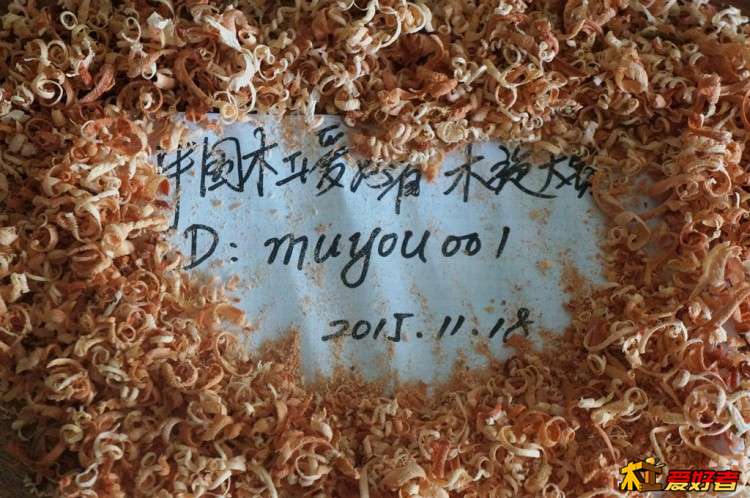 中国木工爱好者 木旋大赛
D: muyou001
2015.11.18
木工爱好者